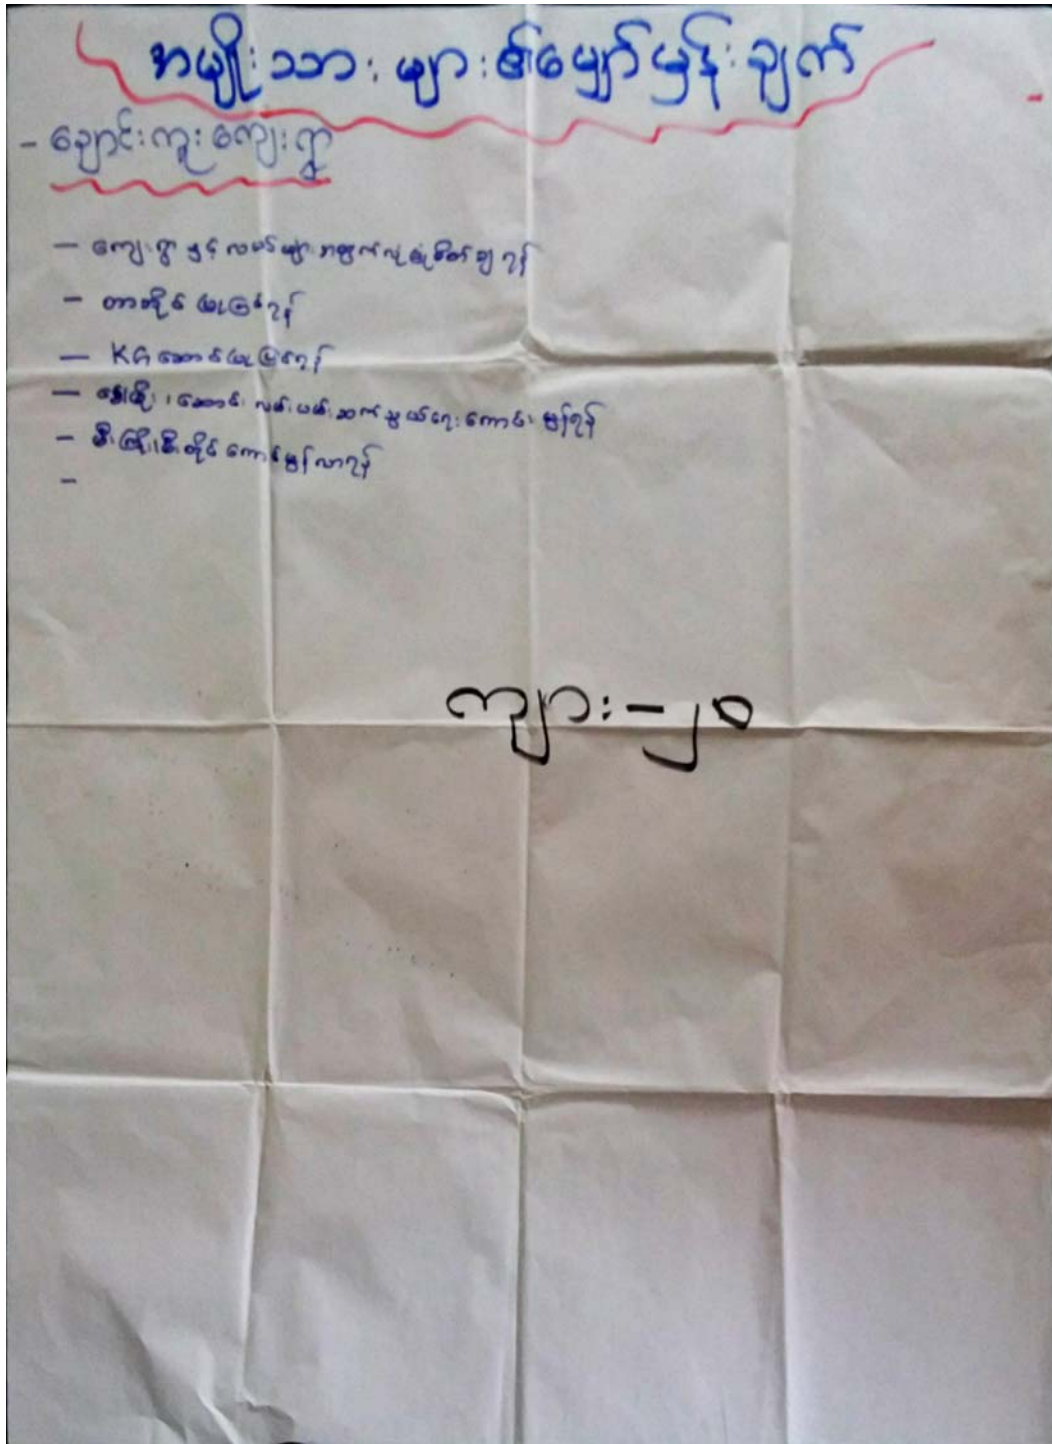 အမျိုးသားများ၏မျှော်မှန်းချက်
- ချောင်းကူးကျေးရွာ
- ကျေးရွာနှင့်လမ်းများအတွက်လုံခြုံစိတ်ချရန်
- တာတိုင် ပြုပြင်ရန်
- KG ဆောင်ပြုပြင်ရန်
- ဆောင်း လမ်းပမ်းဆက်သွယ်ရေးကောင်းမွန်ရန်
- မီးကြိုး၊ မီးတိုင်ကောင်းမွန်လာရန်
-
ကျား - ၂၀